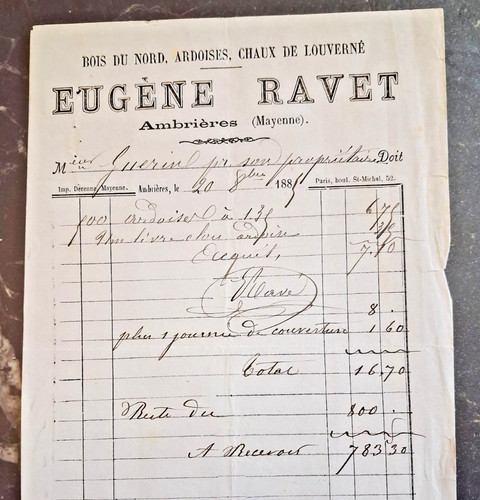 BOIS DU NORD, ARDOISES, CHAUX DE LOUVERNÉ
EUGÈNE RAVET
Ambrières (Mayenne).
Msieur Guerin pr son propriétaire Doit
Imp. Derenne, Mayenne. Ambrières, le 20 8bre 1885 Paris, boul. St-Michel, 52.
500 ardoises à 135 6 75
ardoise 35
acquit, 7.10
Ravé
8 .
plus 1 journée de couverture 1 60
Total 16.70
Reste du 800 .
A Recevoir 783 30